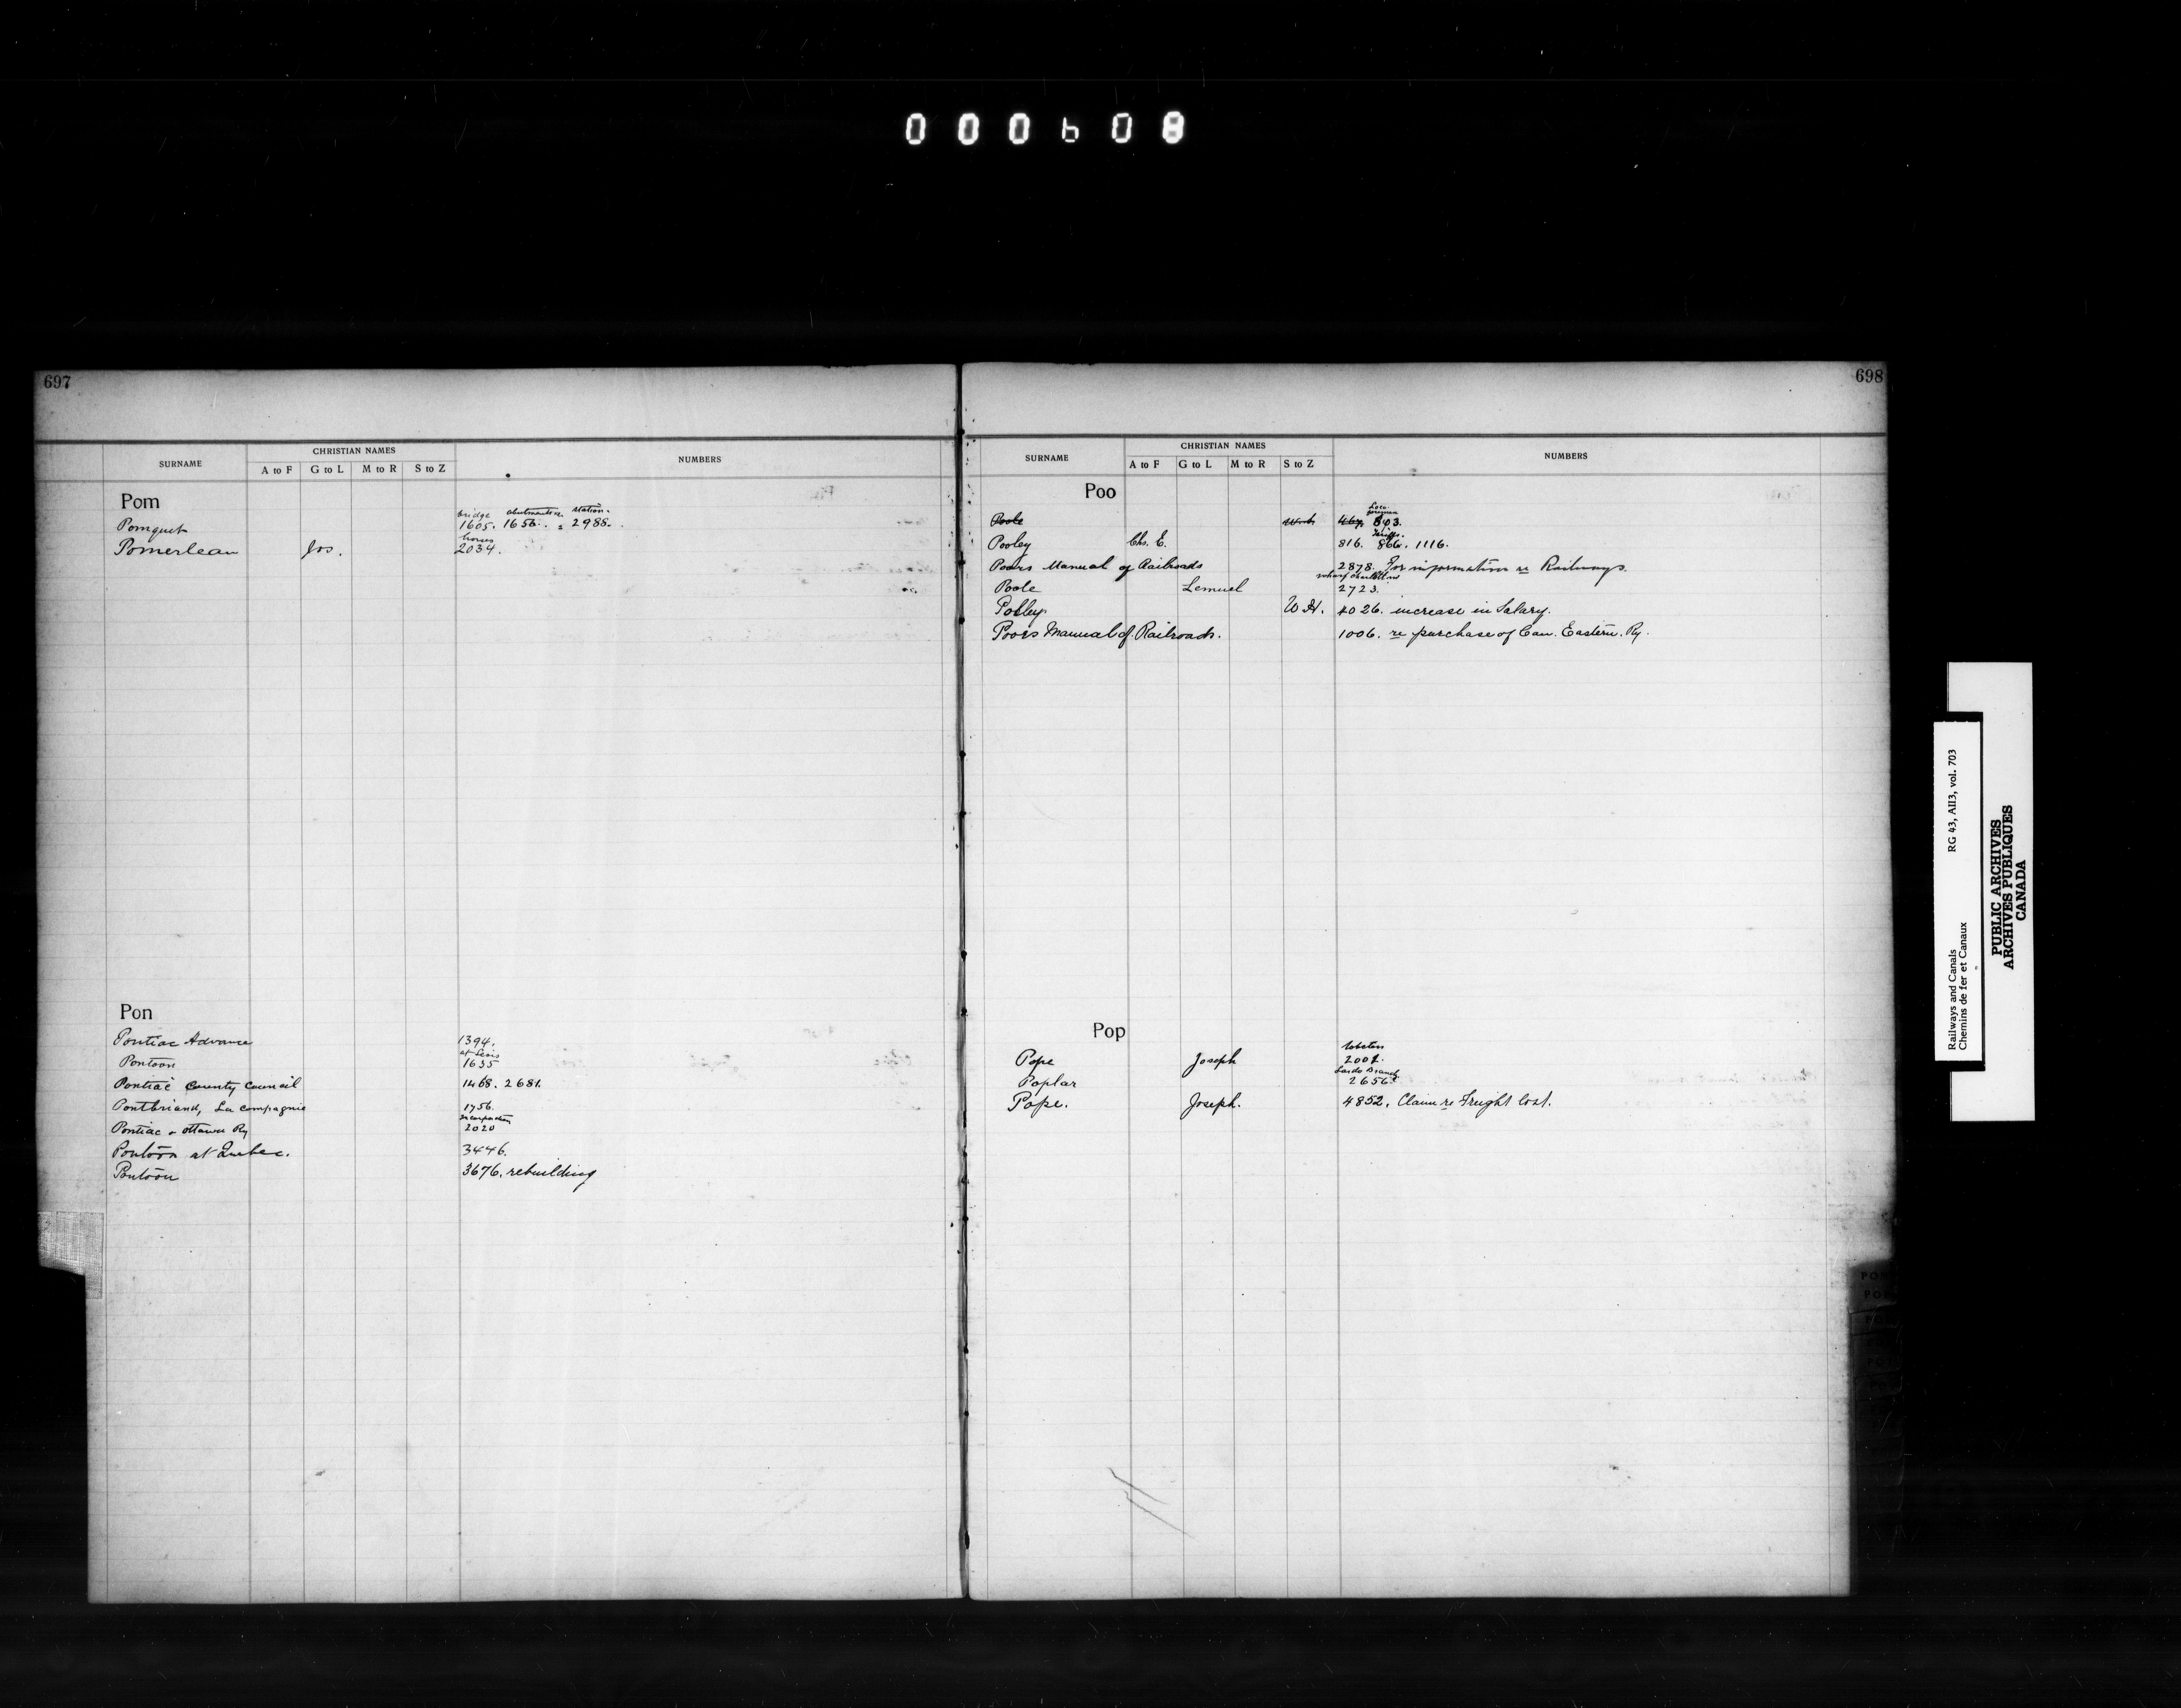 000608
697
SURNAME CHRISTIAN NAMES NUMBERS
A to F G to L M to R S to Z
Pom
bridge station.
Pomquet 1605. 1656. 2988.
horses
Pomerleau Jos. 2034.
Pon
Pontiac Advance 1394.
at Levis
Pontoon 1635
Pontiac County Council 1468. 2681.
Pontbriand, La compagnie 1756.
incorporation
Pontiac & Ottawa Ry 2020
Pontoon at Quebec. 3446.
Pontoon 3676. rebuilding
698
SURNAME CHRISTIAN NAMES NUMBERS
A to F G to L M to R S to Z
Poo
Loco foreman
Poole 893.
Tariffs.
Pooley Chs. E. 816. 866. 1116.
Poors Manual of Railroads 2878. For information re Railways.
wharf
Poole Lemuel 2723.
Polley. W.H. 4026. increase in Salary.
Poors Manual of Railroads. 1006. re purchase of Can. Eastern. Ry.
Pop
lobsters
Pope Joseph 2001.
Branch
Poplar 2656
Pope. Joseph. 4852. Claim re Freight lost.
Railways and Canals RG 43, AII3, vol. 703
Chemins de fer et Canaux
PUBLIC ARCHIVES
ARCHIVES PUBLIQUES
CANADA